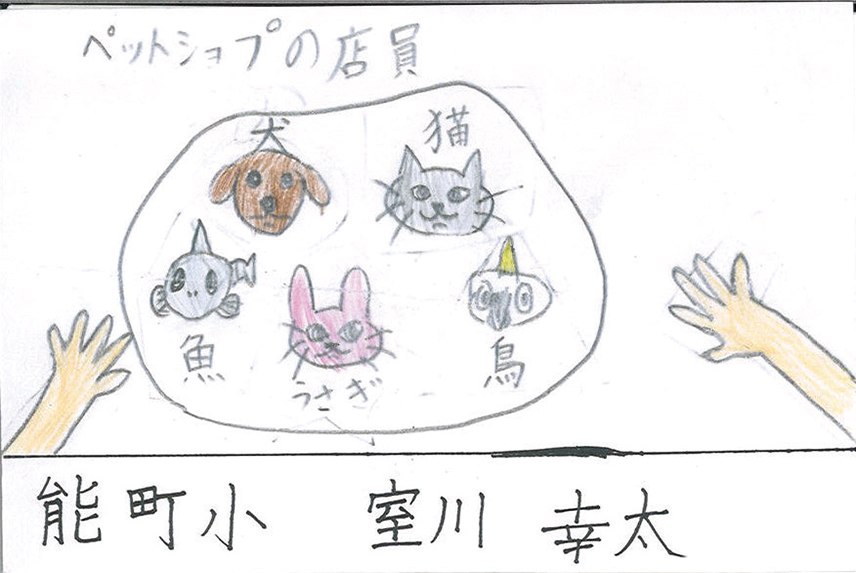 ペットショプの店員
犬 猫
魚 うさぎ 鳥
能町小 室川 幸太